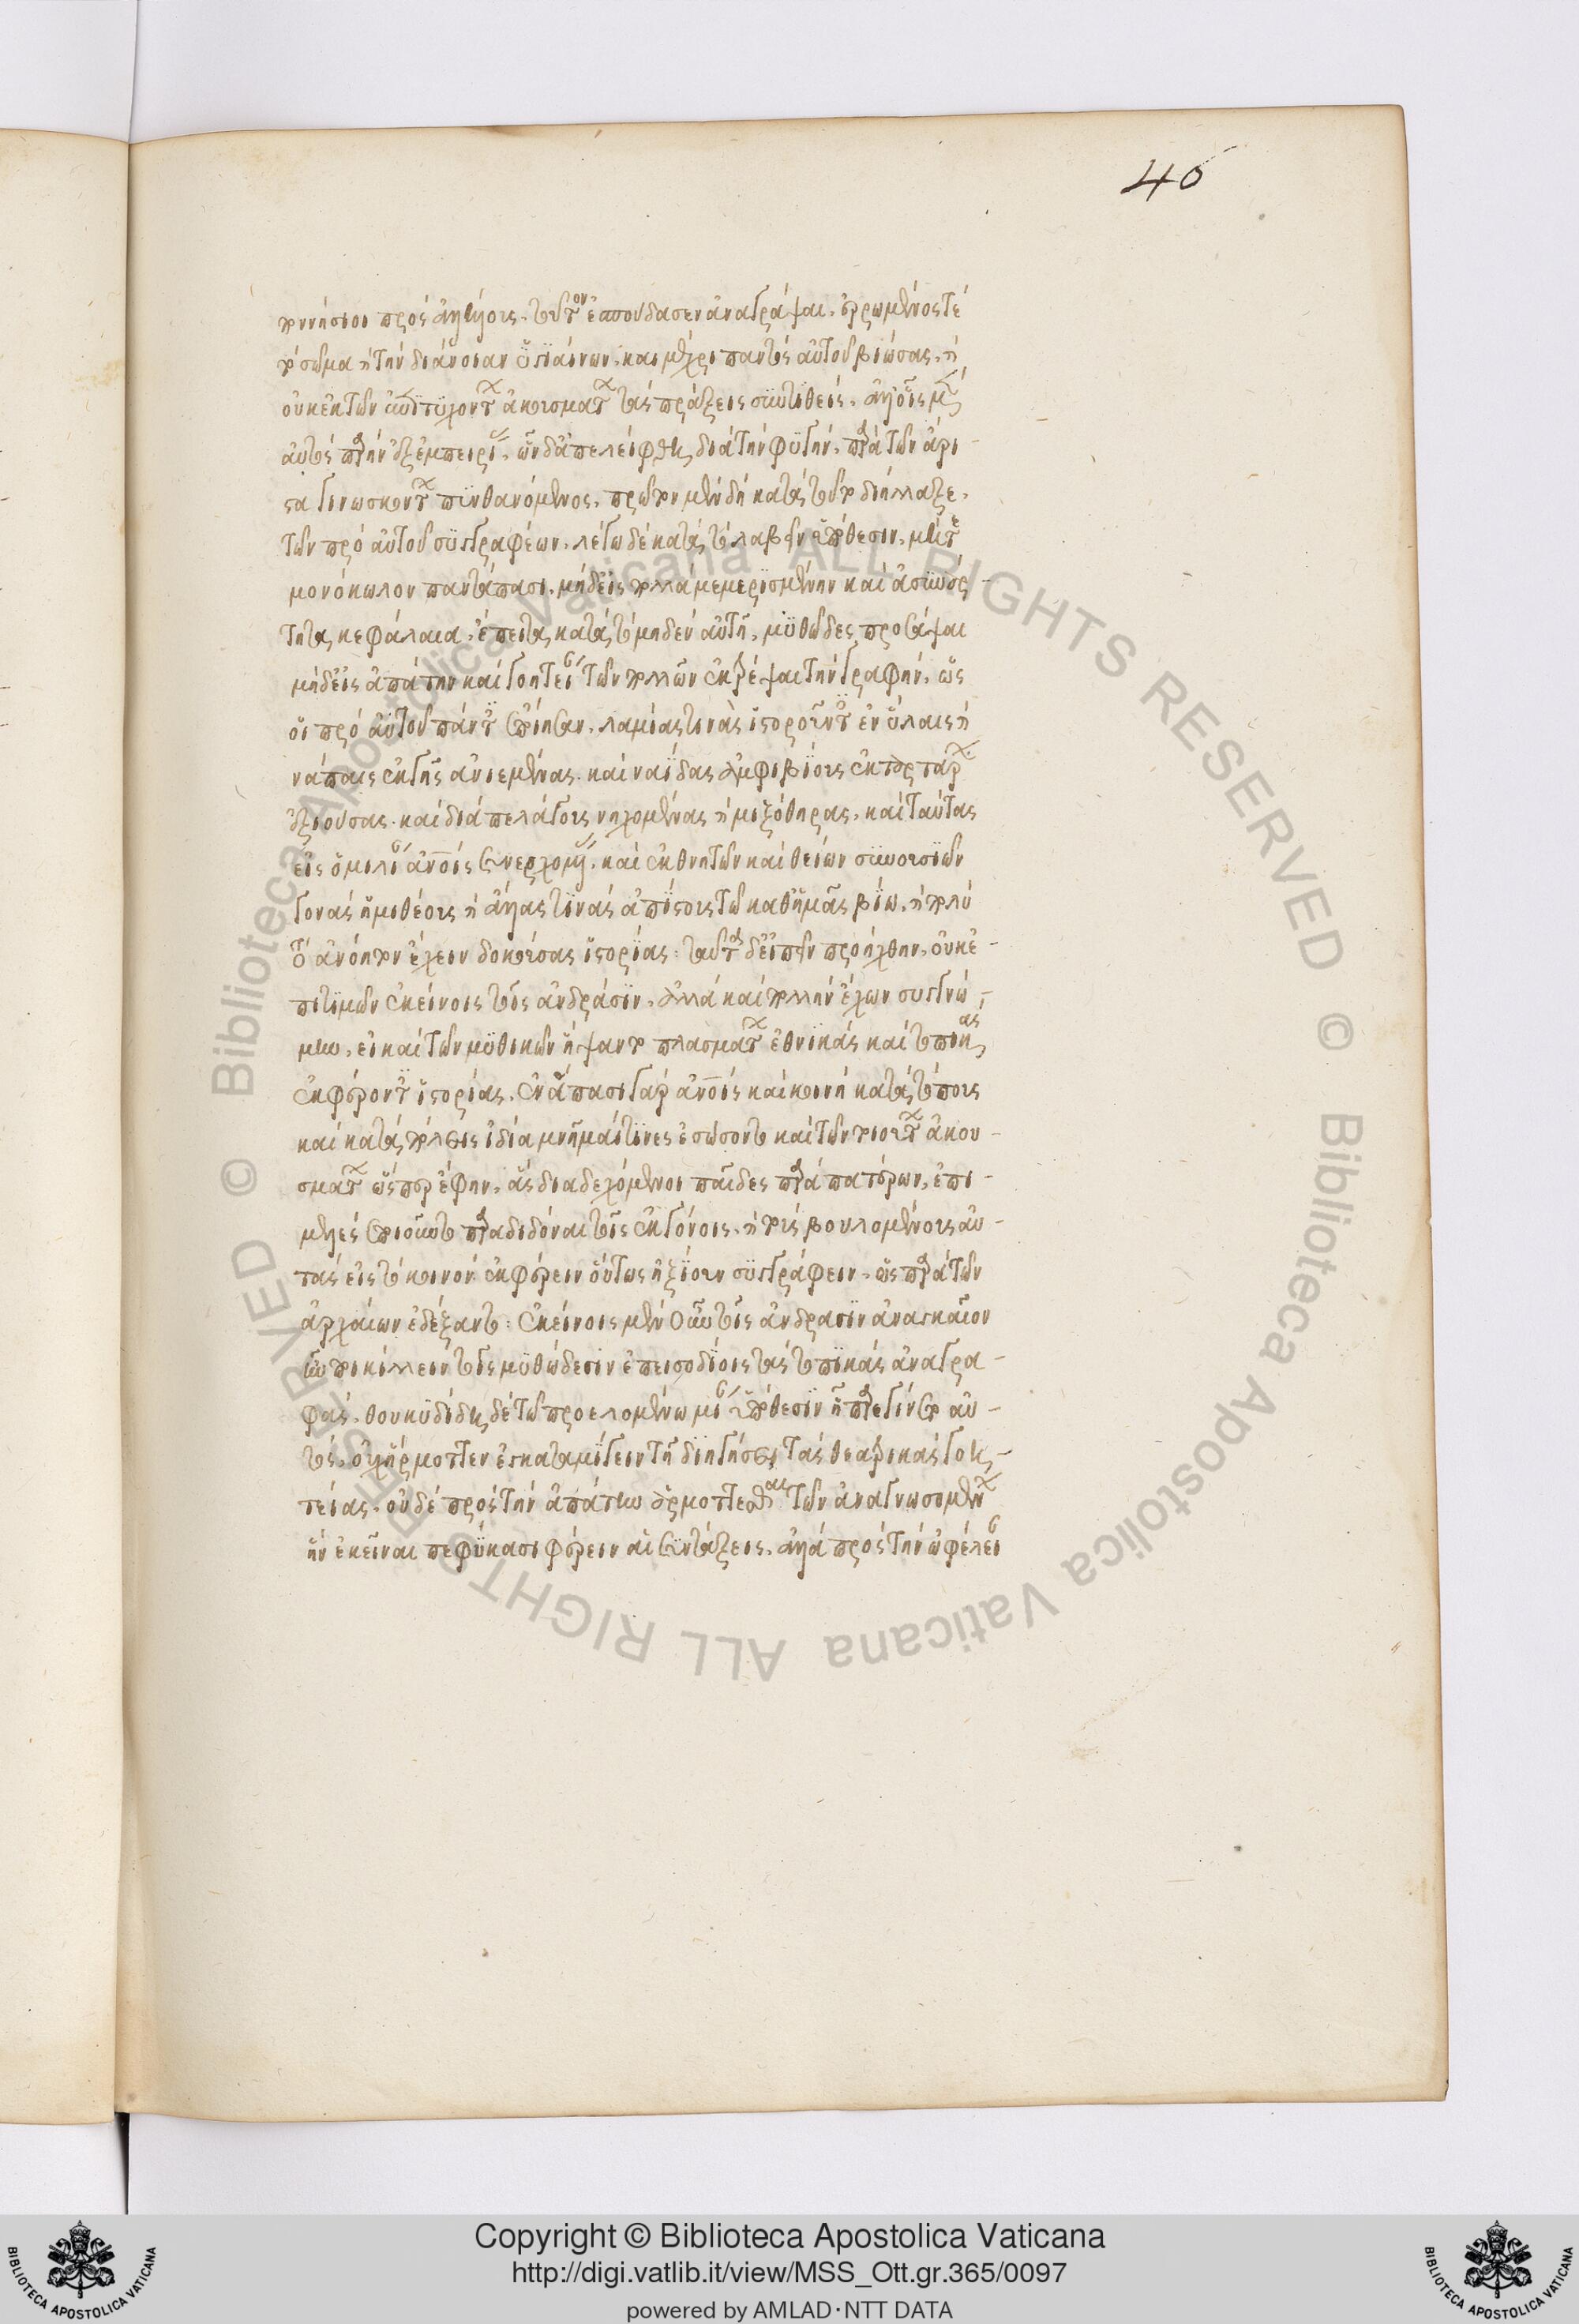 πονήσιοι πρὸς ἀλλήλους. τοῦτον ἐσπούδασεν ἀναγράψαι. ἐρρωμένος τὲ
τὸ σῶμα καὶ τὴν διάνοιαν ὑγιαίνων. καὶ μέχρι παντὸς αὐτοῦ βιώσας. καὶ
οὐκ ἐκ τῶν ἐπιτυχόντων ἀκουσμάτων τὰς πράξεις συντιθεὶς. ἀλλ' οἷς μὲν
αὐτὸς παρῆν ἐξ ἐμπειρίας. ὧν δ' ἀπελείφθη διὰ τὴν φυγὴν. παρὰ τῶν ἄρι-
στα γινωσκόντων πυνθανόμενος. πρῶτον μὲν δὴ κατὰ τοῦτο διήλλαξε.
τῶν πρὸ αὐτοῦ συγγραφέων. λέγω δὲ κατὰ τὸ λαβεῖν ὑπόθεσιν. μήτε
μονόκωλον παντάπασι. μήδ' εἰς πολλὰ μεμερισμένην καὶ ἀσυνάρ-
τητα κεφάλαια. ἔπειτα κατὰ τὸ μηδὲν αὐτῇ. μυθῶδες προσάψαι
μήδ' εἰς ἀπάτην καὶ γοητείαν τῶν πολλῶν ἐκτρέψαι τὴν γραφὴν. ὡς
οἱ πρὸ αὐτοῦ πάντες ἐποίησαν. λαμίας τινὰς ἱστοροῦντες ἐν ὕλαις καὶ
νάπαις ἐκ γῆς ἀνιεμένας. καὶ ναΐδας ἀμφιβίους ἐκ ταρτάρων
ἐξιούσας. καὶ διὰ πελάγους νηχομένας καὶ μιξόθηρας. καὶ ταύτας
εἰς ὁμιλίαν ἀνθρώποις συνερχομένας. καὶ ἐκ θνητῶν καὶ θείων συνουσιῶν
γονὰς ἡμιθέους καὶ ἄλλας τινὰς ἀπίστους τῷ καθ' ἡμᾶς βίῳ. καὶ πολὺ
τὸ ἀνόητον ἔχειν δοκούσας ἱστορίας: ταῦτα δ' εἰπεῖν προήχθην. οὐκ ἐ-
πιτιμῶν ἐκείνοις τοῖς ἀνδράσιν. ἀλλὰ καὶ πολλὴν ἔχων συγγνώ-
μην. εἰ καὶ τῶν μυθικῶν ἥψαντο πλασμάτων ἐθνικὰς καὶ τοπικὰς
ἐκφέροντες ἱστορίας. ἐν ἅπασι γὰρ ἀνθρώποις καὶ κοινῇ κατὰ τόπους
καὶ κατὰ πόλεις ἰδίᾳ μνῆμαι τινὲς ἐσώζοντο καὶ τῶν τοιούτων ἀκου-
σμάτων ὥσπερ ἔφην. ἃς διαδεχόμενοι παῖδες παρὰ πατέρων. ἐπι-
μελὲς ἐποιοῦντο παραδιδόναι τοῖς ἐκγόνοις. καὶ τοὺς βουλομένους αὐ-
τὰς εἰς τὸ κοινὸν ἐκφέρειν οὕτως ἠξίουν συγγράφειν. ὡς παρὰ τῶν
ἀρχαίων ἐδέξαντο: ἐκείνοις μὲν οὖν τοῖς ἀνδράσιν ἀναγκαῖον
ἦν ποικίλλειν τοῖς μυθώδεσιν ἐπεισοδίοις τὰς τοπικὰς ἀναγρα-
φὰς. θουκυδίδη δὲ τῷ προελομένῳ μίαν ὑπόθεσιν ᾗ παρεγίνετο αὐ-
τὸς. οὐχ ἥρμοττεν ἐγκαταμίγειν τῇ διηγήσει τὰς θεατρικὰς γοη-
τείας. οὐδὲ πρὸς τὴν ἀπάτην ἁρμόττεσθαι τῶν ἀναγνωσομένων
ἣν ἐκεῖναι πεφύκασι φέρειν αἱ συντάξεις. ἀλλὰ πρὸς τὴν ὠφέλειαν
46
Copyright © Biblioteca Apostolica Vaticana
http://digi.vatlib.it/view/MSS_Ott.gr.365/0097
powered by AMLAD·NTT DATA
BIBLIOTECA APOSTOLICA VATICANA
BIBLIOTECA APOSTOLICA VATICANA
© Biblioteca Apostolica Vaticana ALL RIGHTS RESERVED © Biblioteca Apostolica Vaticana ALL RIGHTS RESERVED